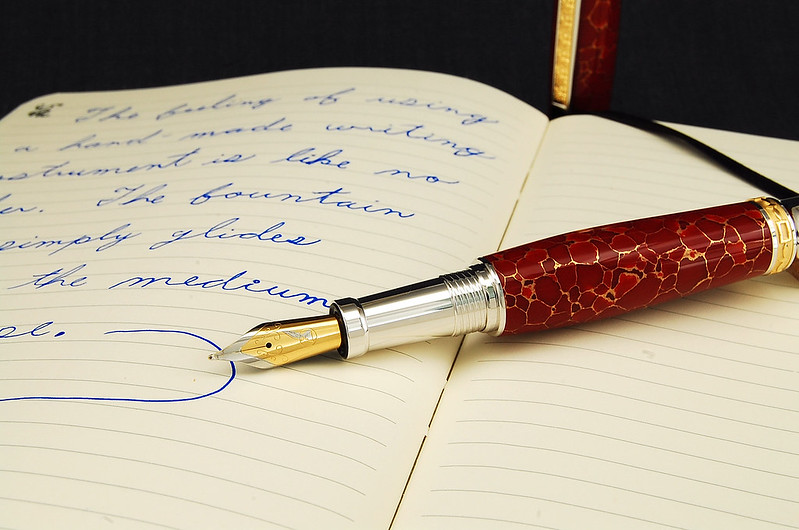 The feeling of using
a hand made writing
nstrument is like no
er. The fountain
simply glides
the medium